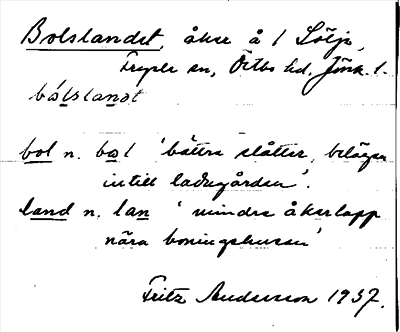 Bolslandet, åker å 1 Lölja,
Fryele sn, Östbo hd, Jönk. l.
bólslanət
bol n. bo̱l 'bättre slåtter, belägen
intill ladugården'.
land n. lan 'mindre åkerlapp
nära boningshusen'
Fritz Andersson 1937.